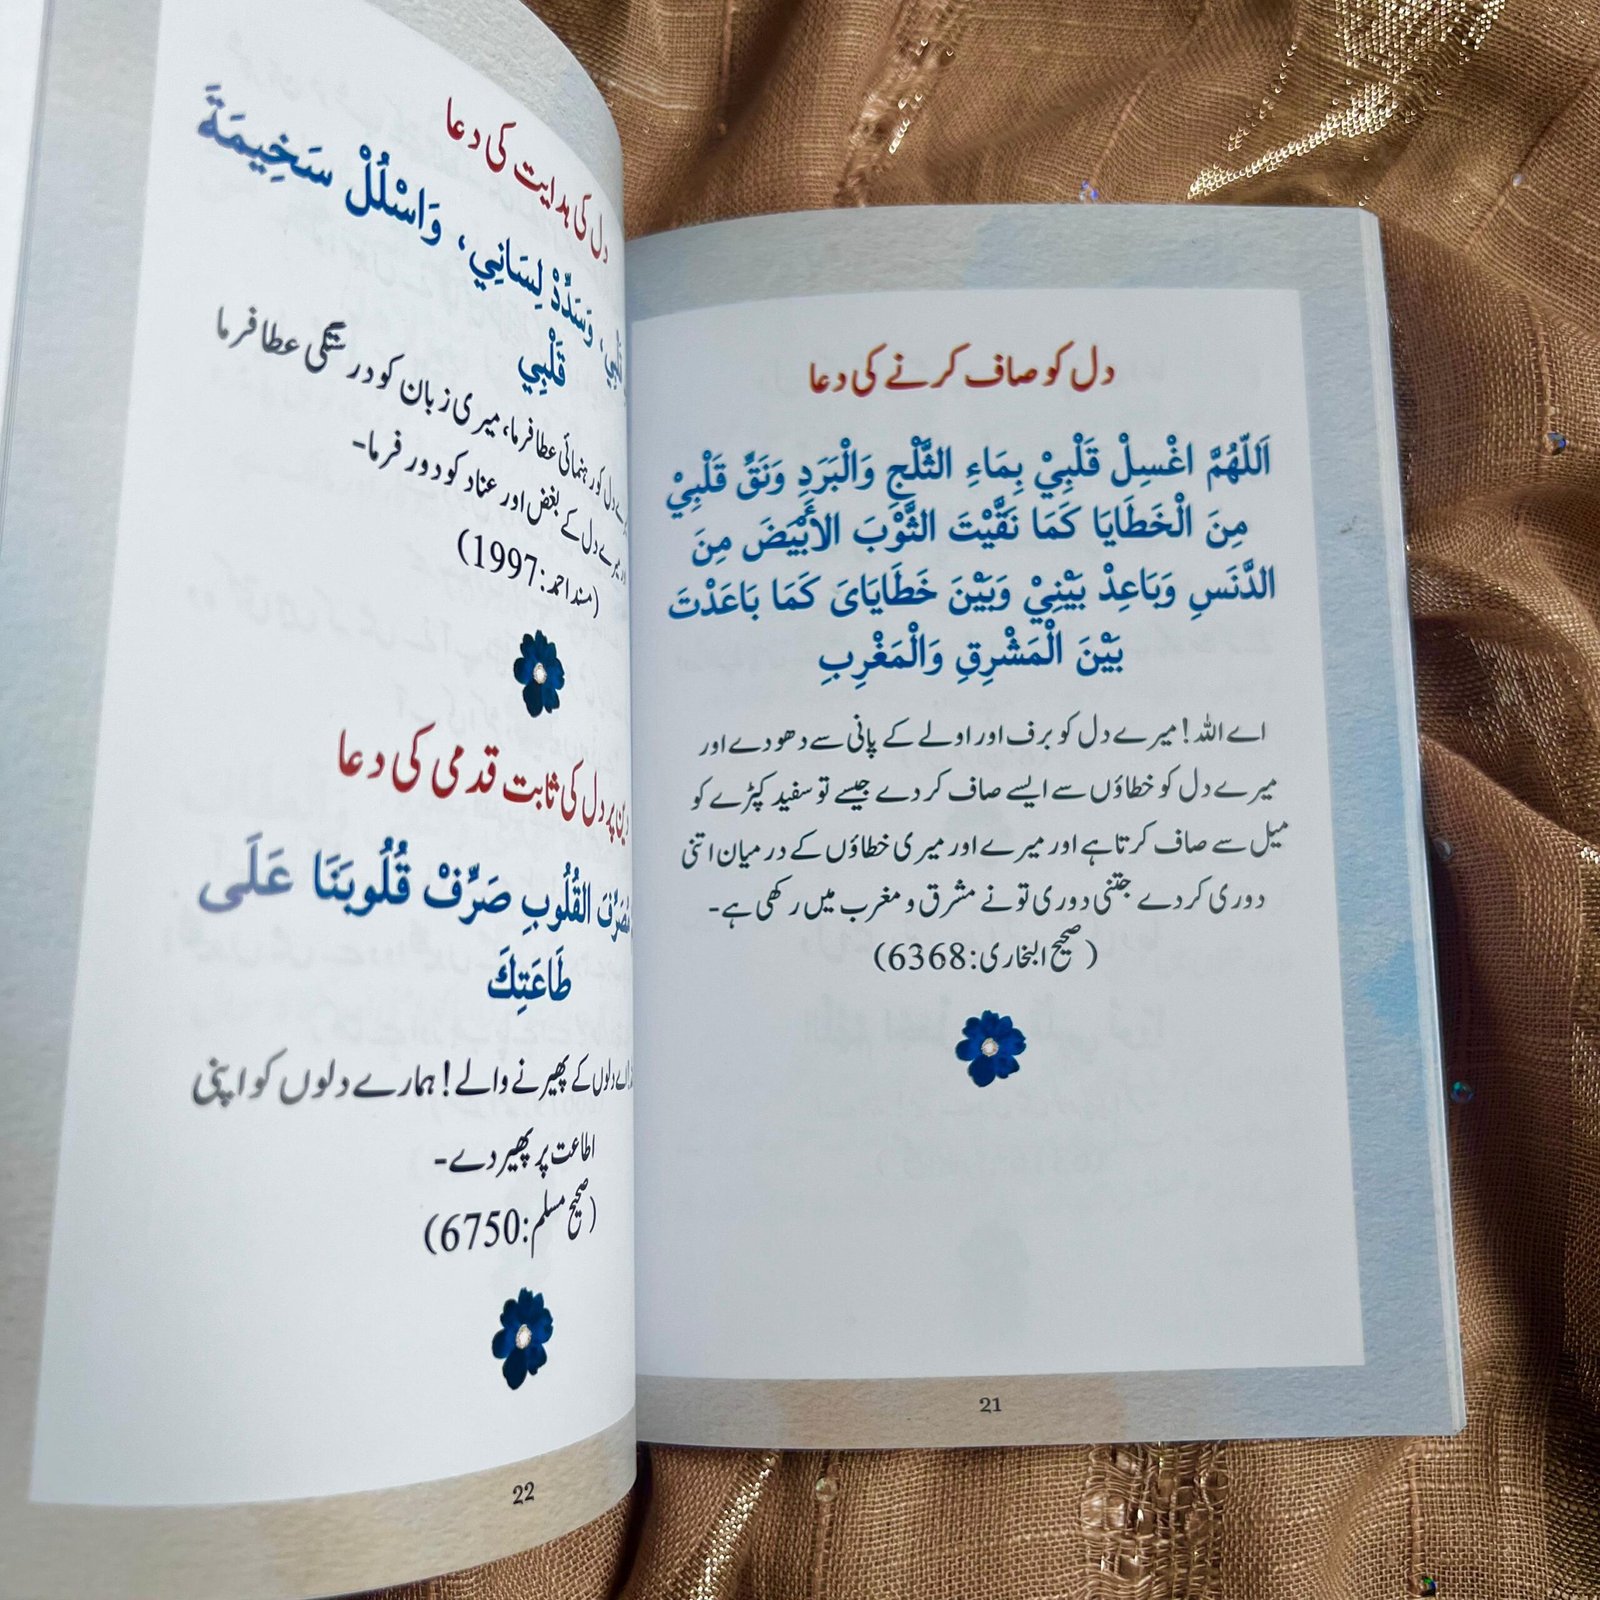 دل کو صاف کرنے کی دعا
اَللّٰهُمَّ اغْسِلْ قَلْبِيْ بِمَاءِ الثَّلْجِ وَالْبَرَدِ وَنَقِّ قَلْبِيْ
مِنَ الْخَطَايَا كَمَا نَقَّيْتَ الثَّوْبَ الأَبْيَضَ مِنَ
الدَّنَسِ وَبَاعِدْ بَيْنِيْ وَبَيْنَ خَطَايَایَ كَمَا بَاعَدْتَ
بَيْنَ الْمَشْرِقِ وَالْمَغْرِبِ
اے اللہ! میرے دل کو برف اور اولے کے پانی سے دھو دے اور
میرے دل کو خطاؤں سے ایسے صاف کر دے جیسے تو سفید کپڑے کو
میل سے صاف کرتا ہے اور میرے اور میری خطاؤں کے درمیان اتنی
دوری کر دے جتنی دوری تو نے مشرق و مغرب میں رکھی ہے۔
(صحیح البخاری:6368)
21
دل کی ہدایت کی دعا
وَسَدِّدْ لِسَانِي، وَاسْلُلْ سَخِيمَةَ
قَلْبِي
دل کو رہنمائی عطا فرما، میری زبان کو درستگی عطا فرما
دل کے بغض اور عناد کو دور فرما۔
(مسند احمد:1997)
دین پر دل کی ثابت قدمی کی دعا
مُصَرِّفَ الْقُلُوبِ صَرِّفْ قُلُوبَنَا عَلَى
طَاعَتِكَ
اے دلوں کے پھیرنے والے! ہمارے دلوں کو اپنی
اطاعت پر پھیر دے۔
(صحیح مسلم:6750)
22